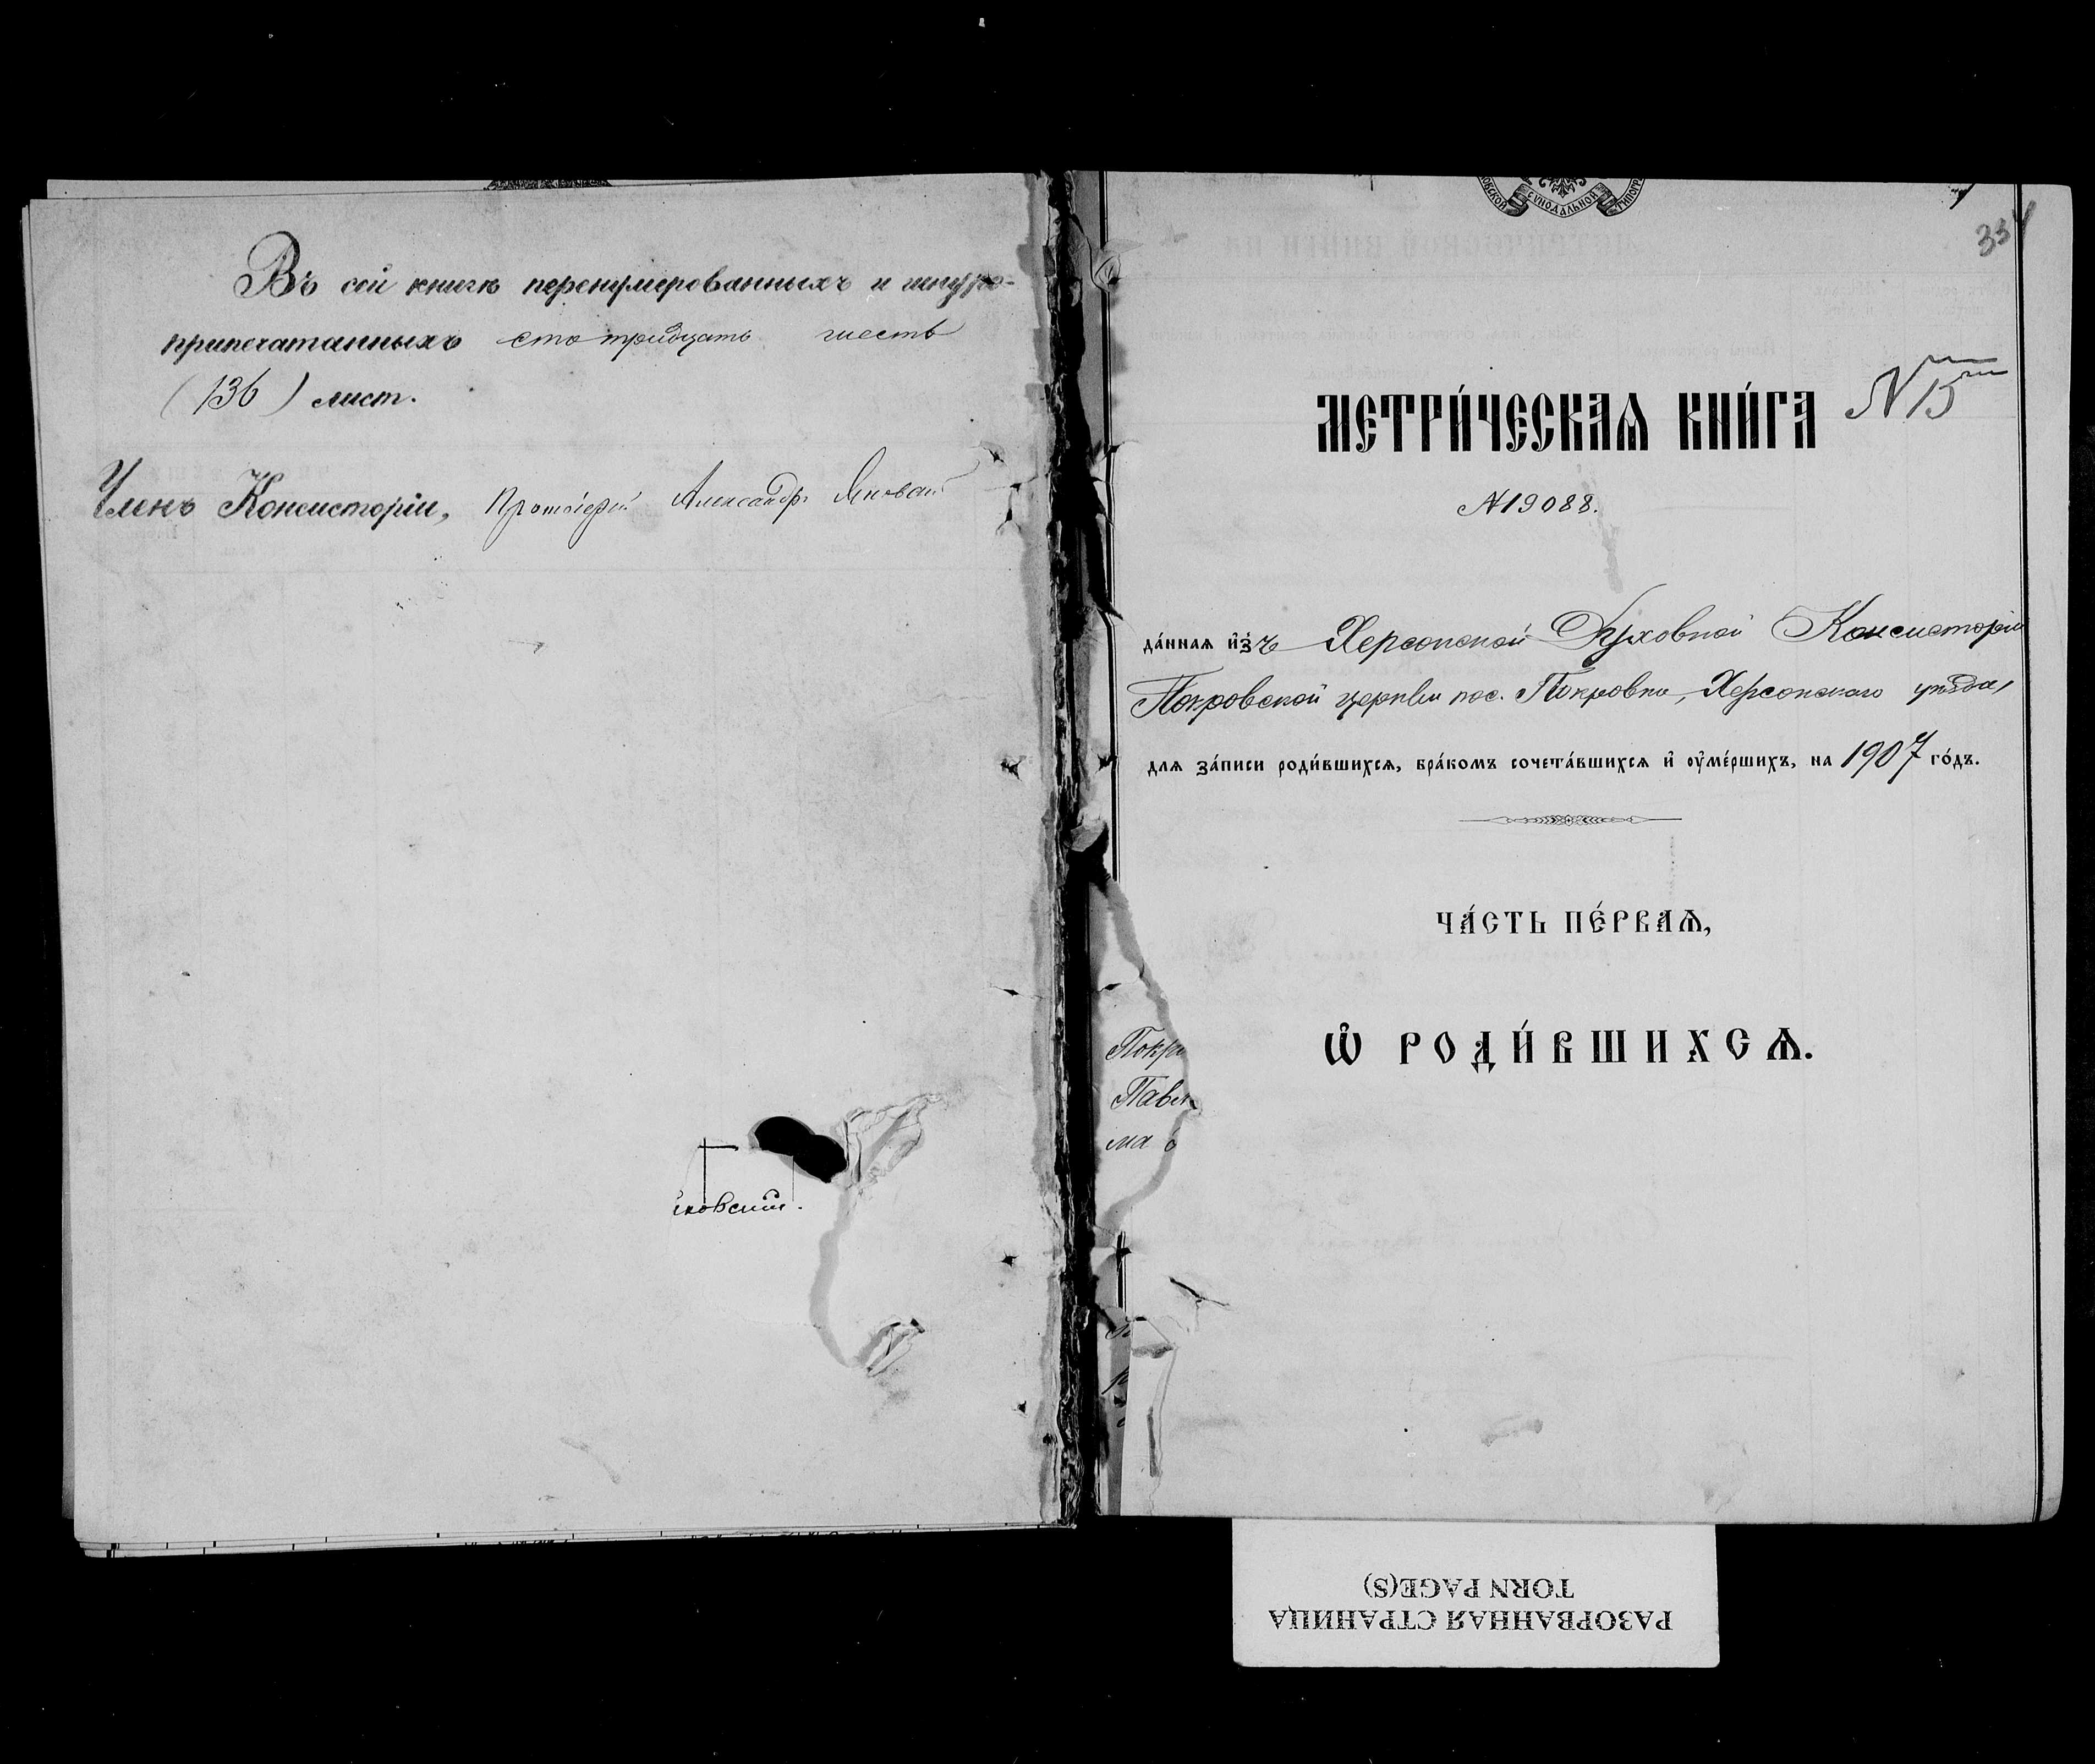 Въ сей книгѣ перенумерованныхъ и шнуро-
припечатанныхъ сто тридцать шесть
(136) лист.
Членъ Консисторіи, Протоіерей Александръ
СѴНОДАЛЬНОЙ
МЕТРИ́ЧЕСКАѦ КНИ́ГА N 15
N 19088.
да́ннаѧ и҆зъ Херсонской Духовной Консисторіи
Покровской церкви пос. Покровки, Херсонскаго уѣзда,
длѧ за́писи роди́вшихсѧ, бра́комъ сочета́вшихсѧ и҆ ѹ҆ме́ршихъ, на 1907 го́дъ.
ЧА́СТЬ ПЕ́РВАѦ,
Ѡ҆ РОДИ́ВШИХСѦ.
Покро
Павл
ма
РАЗОРВАННАЯ СТРАНИЦА
TORN PAGE(S)